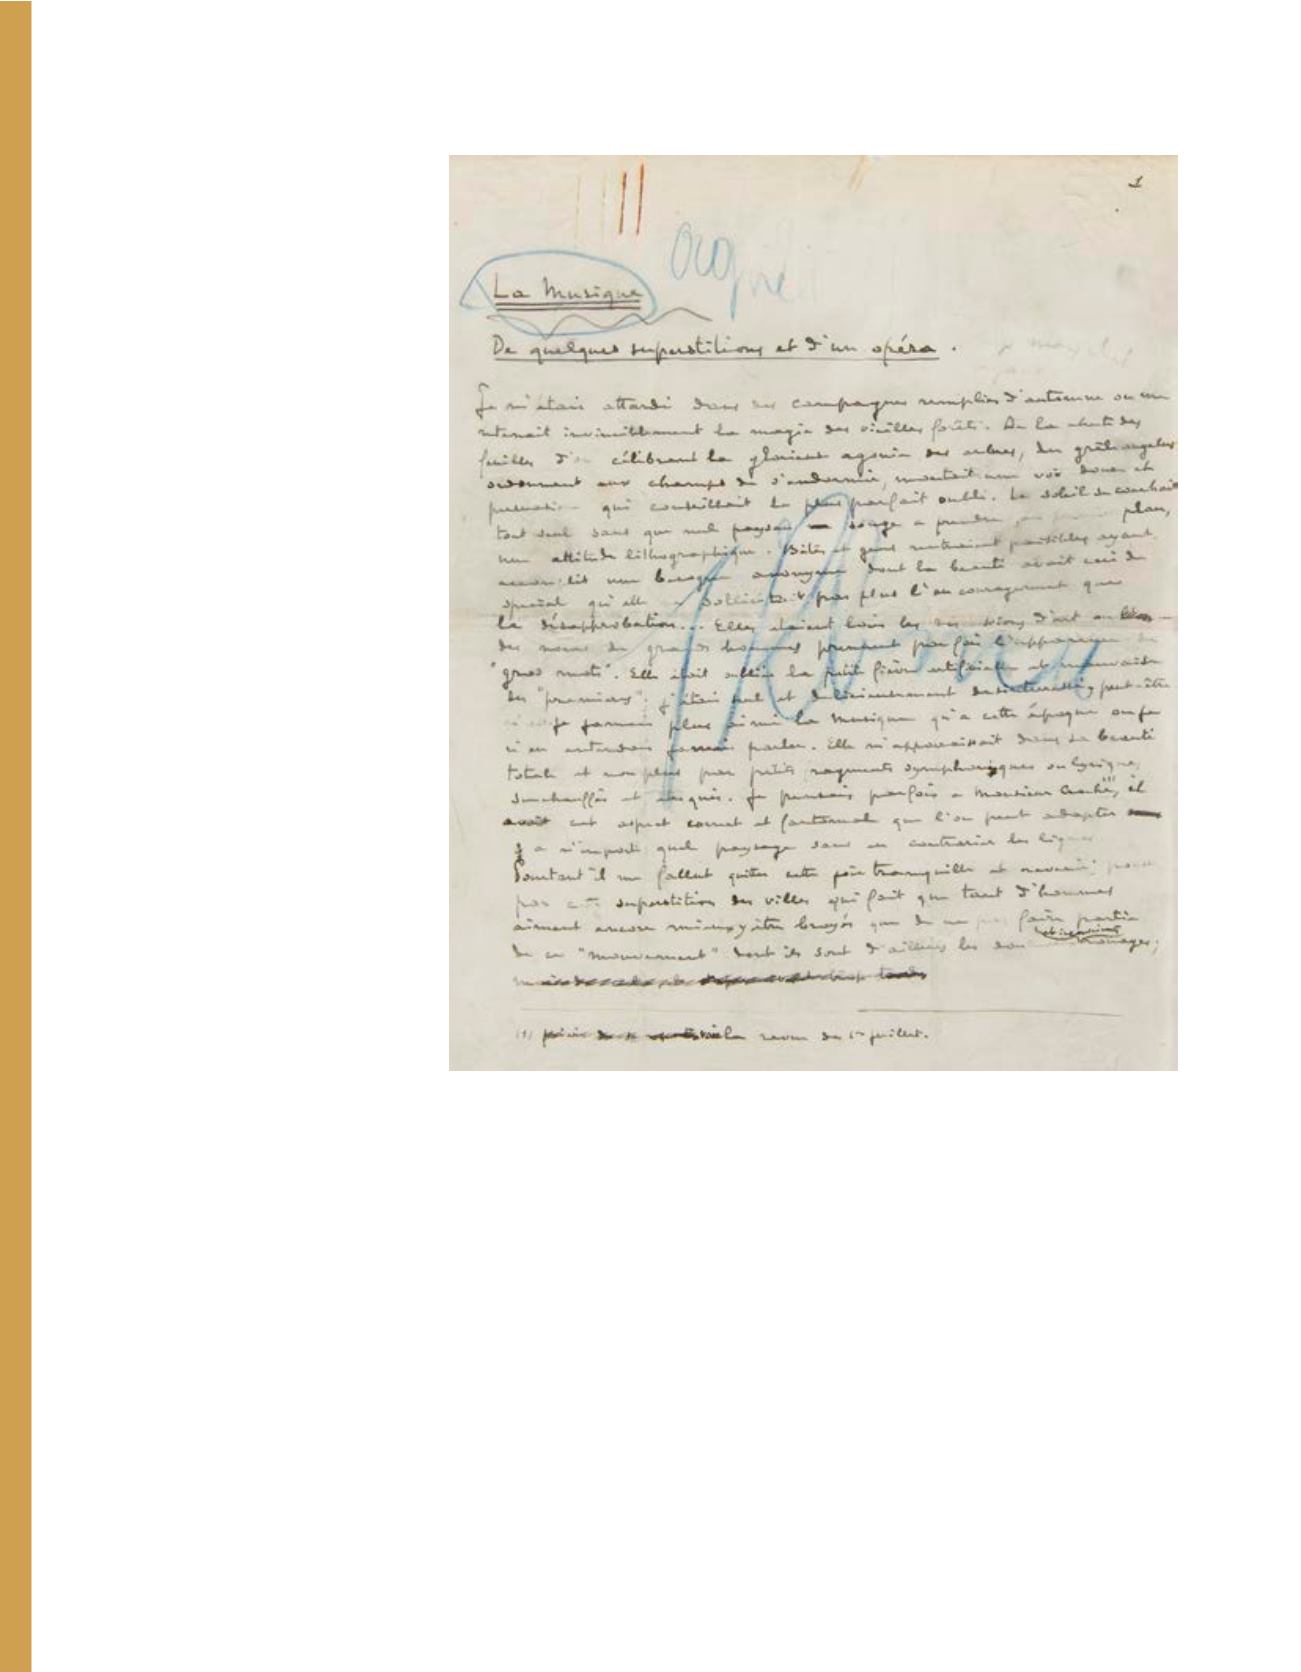 1
La Musique
De quelques superstitions et d'un opéra.
Je m'étais attardi dans des campagnes remplies d'automne où me
retenait invinciblement la magie des vieilles forêts. De la chute des
feuilles d'or célébrant la glorieuse agonie des arbres, du grêle angelus
ordonnant aux champs de s'endormir, montait une voix douce et
persuasive qui conseillait le plus parfait oubli. Le soleil se couchait
tout seul sans que nul paysan songe à prendre, au premier plan,
une attitude lithographique. Bêtes et gens rentraient paisibles ayant
accompli une besogne anonyme dont la beauté avait ceci de
spécial qu'elle ne sollicitait pas plus l'encouragement que
la désapprobation... Elles étaient loin les discussions d'art où
des noms de grands hommes prennent parfois l'apparence de
"gros mots". Elle était oubliée la petite fièvre artificielle et mauvaise
des "premières"; j'étais seul et délicieusement désintéressé; peut-être
n'ai-je jamais plus aimé la musique qu'à cette époque où je
n'en entendais jamais parler. Elle m'apparaissait dans sa beauté
totale et non plus par petits fragments symphoniques ou lyriques
surchauffés et étriqués. Je pensais parfois à Monsieur Croche (1), il
avait cet aspect correct et fantomal que l'on peut adapter
à n'importe quel paysage sans en contrarier les lignes
Pourtant il me fallut quitter cette joie tranquille et revenir, poussé
par cette superstition des villes qui fait que tant d'hommes
aiment encore mieux y être broyés que de ne pas faire partie
de ce "mouvement" dont ils sont d'ailleurs les rouages;
(1) la revue du 1er juillet.